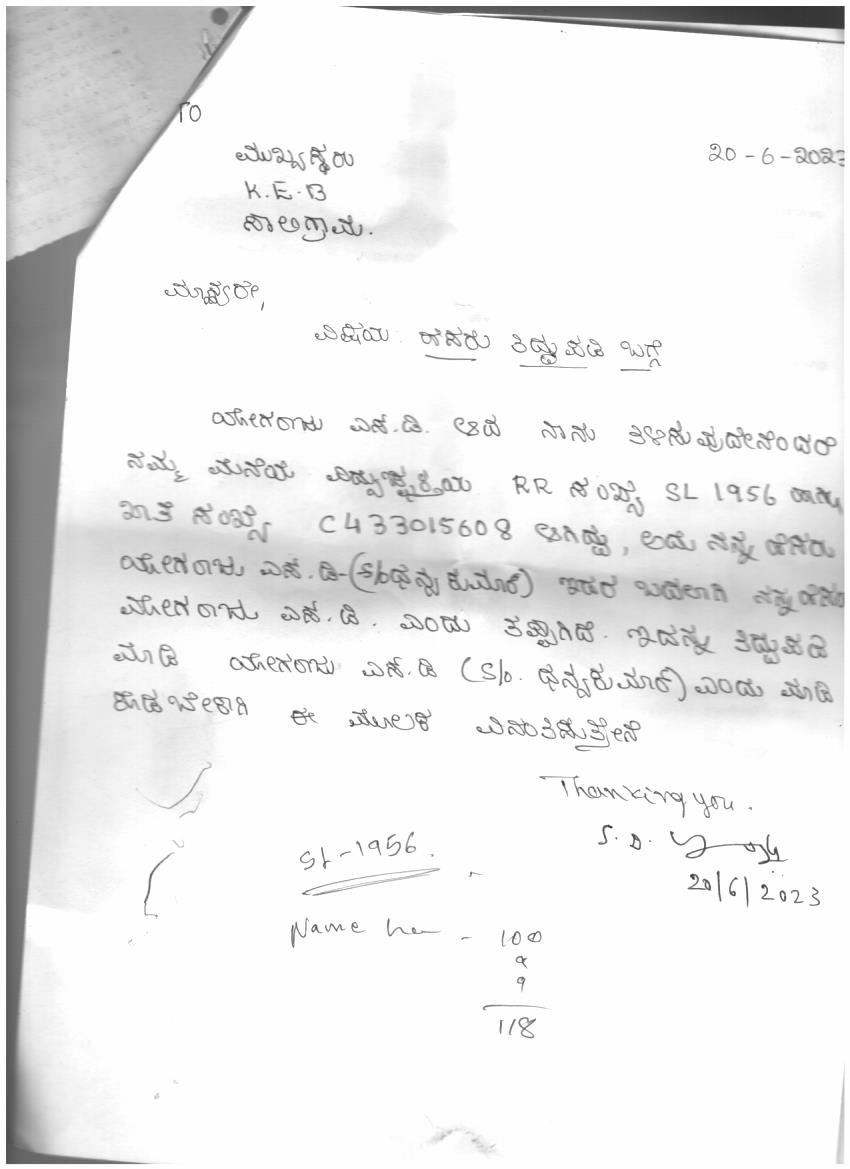 TO
ಮುಖ್ಯಸ್ಥರು
20-6-2023
K.E.B
ಸಾಲಿಗ್ರಾಮ.
ಮಾನ್ಯರೇ,
ವಿಷಯ: ಹೆಸರು ತಿದ್ದುಪಡಿ ಬಗ್ಗೆ
ಯೋಗರಾಜು ಎಸ್.ಡಿ. ಆದ ನಾನು ತಿಳಿಸುವುದೇನೆಂದರೆ
ನಮ್ಮ ಮನೆಯ ವಿದ್ಯುಚ್ಛಕ್ತಿಯ RR ಸಂಖ್ಯೆ SL 1956 ಹಾಗೂ
ಖಾತೆ ಸಂಖ್ಯೆ C433015608 ಆಗಿದ್ದು, ಅದು ನನ್ನ ಹೆಸರು
ಯೋಗರಾಜು ಎಸ್.ಡಿ-(S/o ಧನ್ಯಕುಮಾರ್) ಇದರ ಬದಲಾಗಿ ನನ್ನ ಹೆಸರು
ಮೋಗರಾಜು ಎಸ್.ಡಿ. ಎಂದು ತಪ್ಪಾಗಿದೆ. ಇದನ್ನು ತಿದ್ದುಪಡಿ
ಮಾಡಿ ಯೋಗರಾಜು ಎಸ್.ಡಿ (S/o. ಧನ್ಯಕುಮಾರ್) ಎಂದು ಮಾಡಿ
ಕೊಡಬೇಕಾಗಿ ಈ ಮೂಲಕ ವಿನಂತಿಸುತ್ತೇನೆ
Thanking you.
S. D.
20/6/2023
SL-1956.
Name - 100
9
9
118